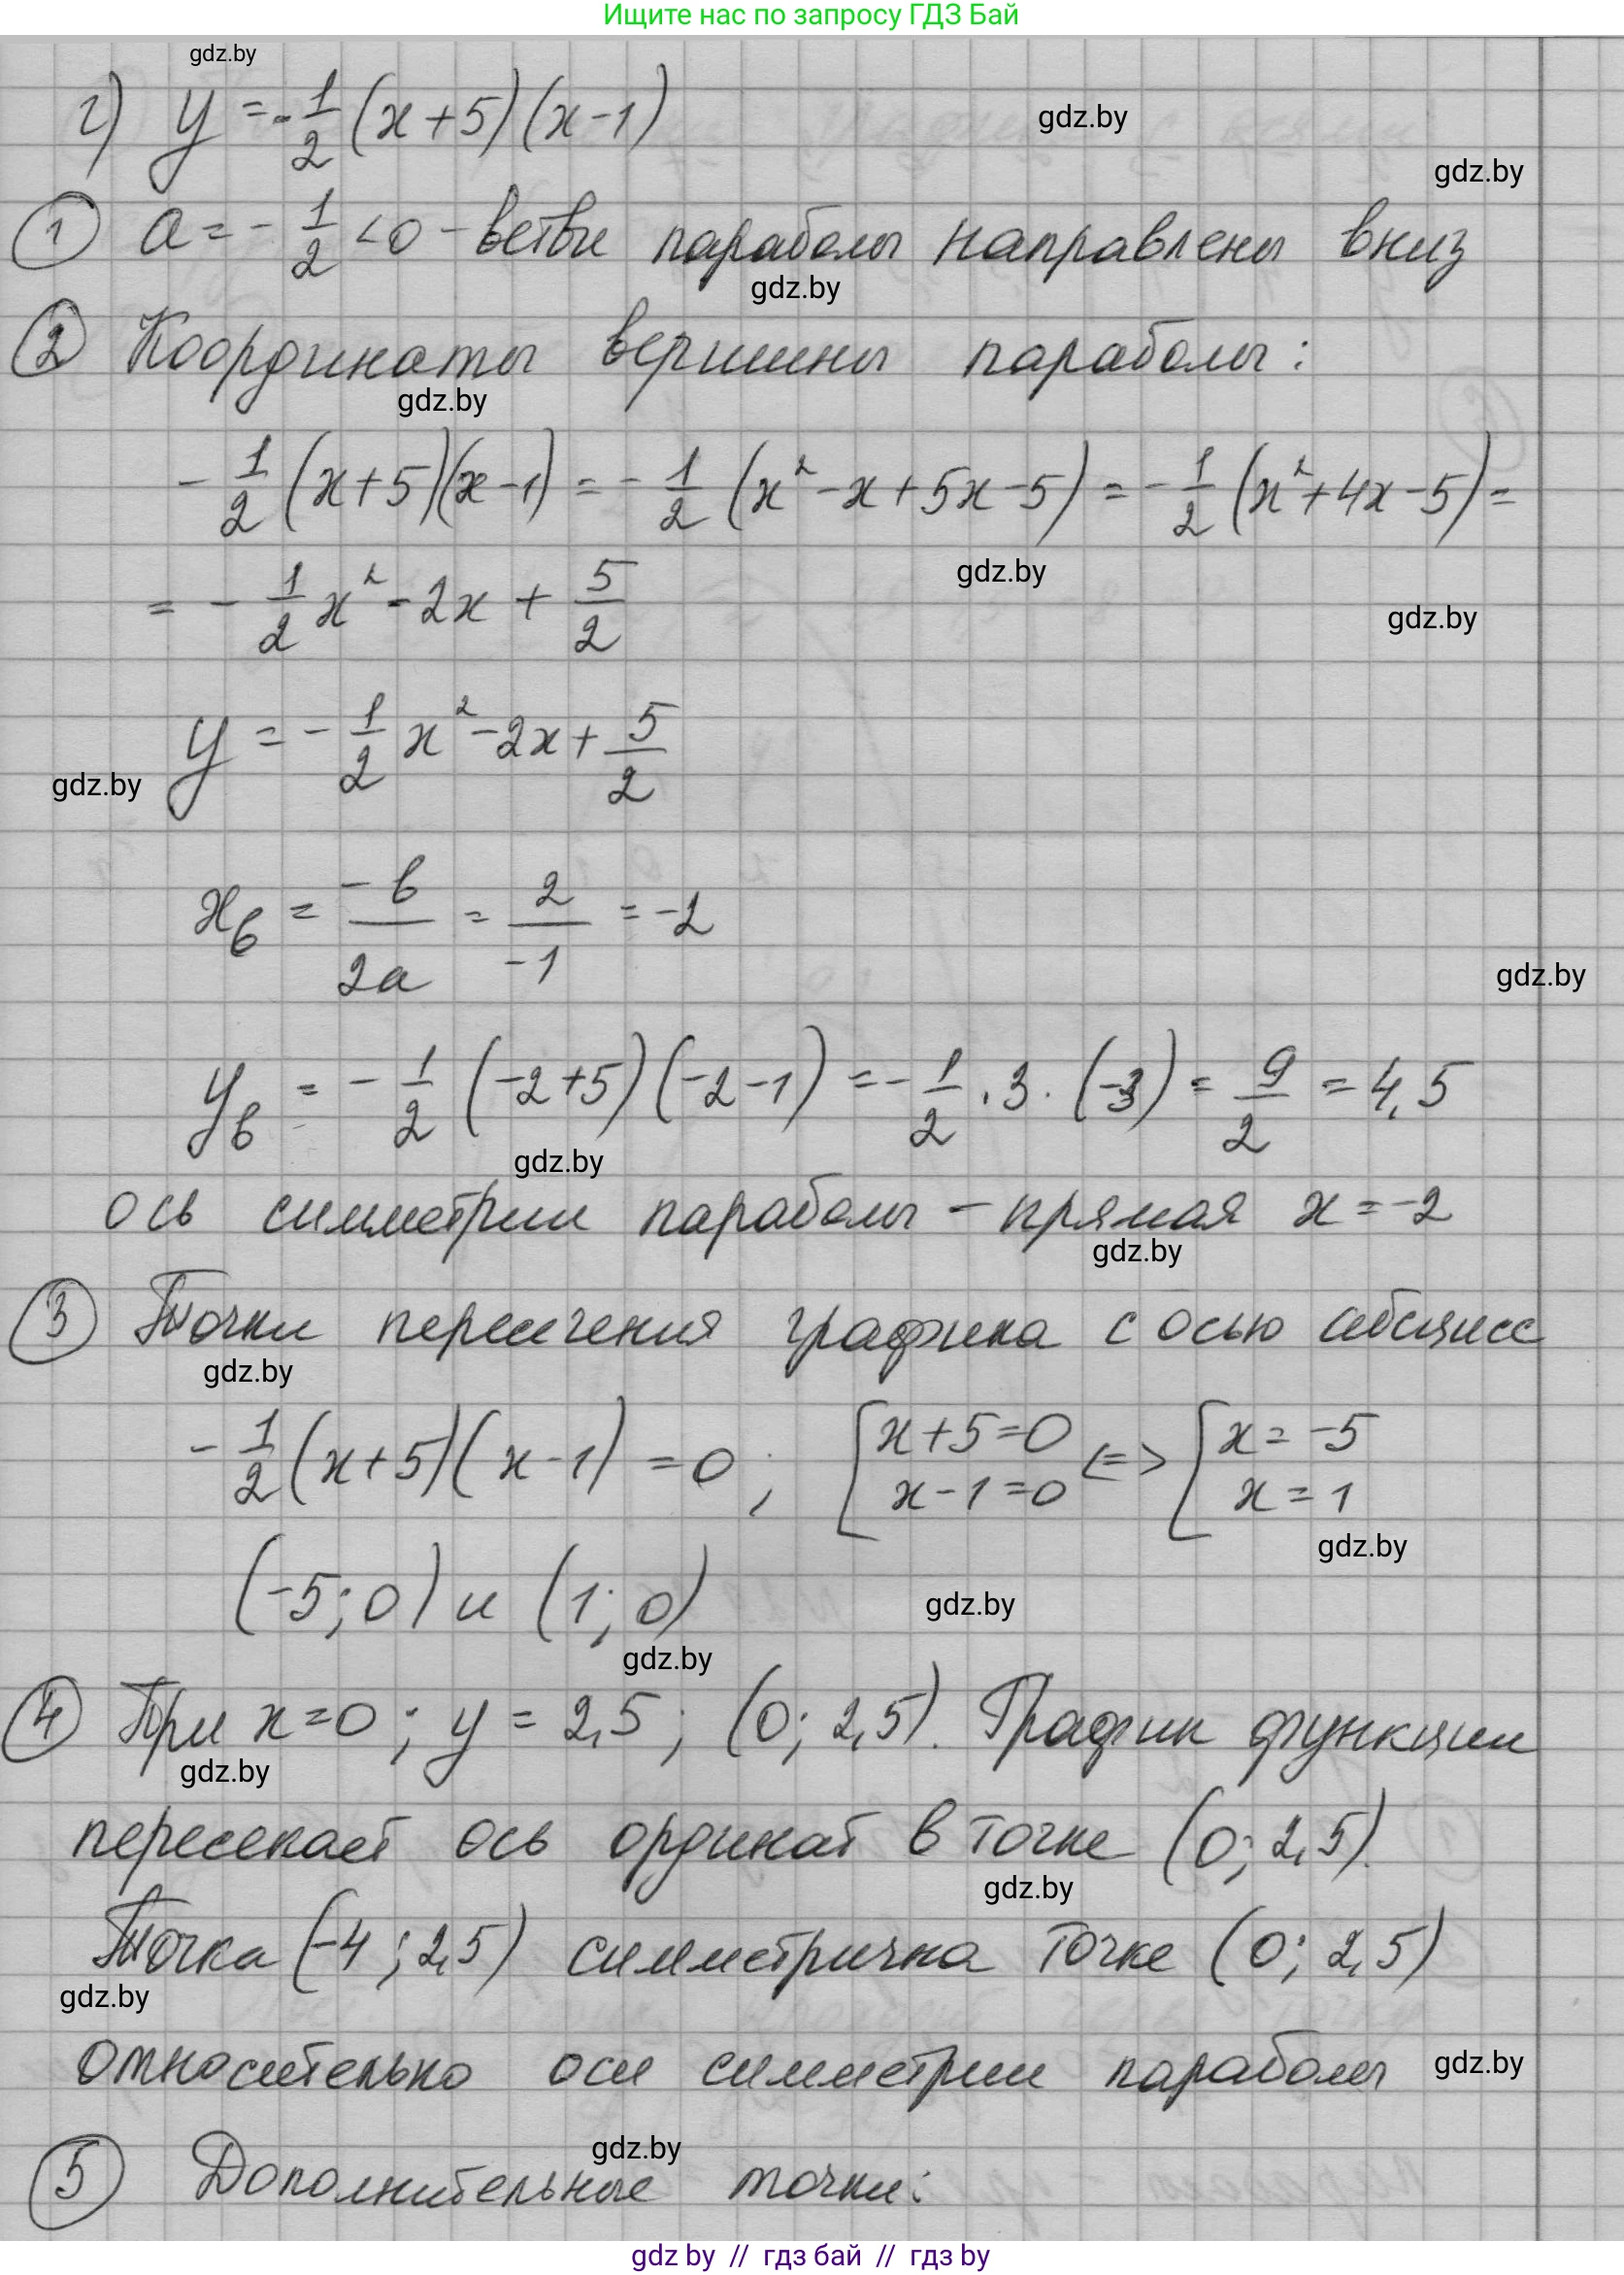 Ищите нас по запросу ГДЗ Бай
gdz.by
г) y = -1/2 (x+5)(x-1)
gdz.by
gdz.by
① a = -1/2 < 0 - ветви параболы направлены вниз
gdz.by
② Координаты вершины параболы:
gdz.by
-1/2 (x+5)(x-1) = -1/2 (x²-x+5x-5) = -1/2 (x²+4x-5) =
gdz.by
= -1/2 x² - 2x + 5/2
gdz.by
y = -1/2 x² - 2x + 5/2
gdz.by
xв = -b/2a = 2/-1 = -2
gdz.by
yв = -1/2 (-2+5)(-2-1) = -1/2 · 3 · (-3) = 9/2 = 4,5
gdz.by
ось симметрии параболы - прямая x = -2
gdz.by
③ Точки пересечения графика с осью абсцисс
gdz.by
-1/2 (x+5)(x-1) = 0; [x+5=0 <=> [x=-5
x-1=0 x=1
gdz.by
(-5; 0) и (1; 0)
gdz.by
gdz.by
④ При x=0; y = 2,5; (0; 2,5). График функции
gdz.by
пересекает ось ординат в точке (0; 2,5).
gdz.by
Точка (-4; 2,5) симметрична точке (0; 2,5)
gdz.by
относительно оси симметрии параболы
gdz.by
gdz.by
⑤ Дополнительные точки:
gdz by // гдз бай // гдз by